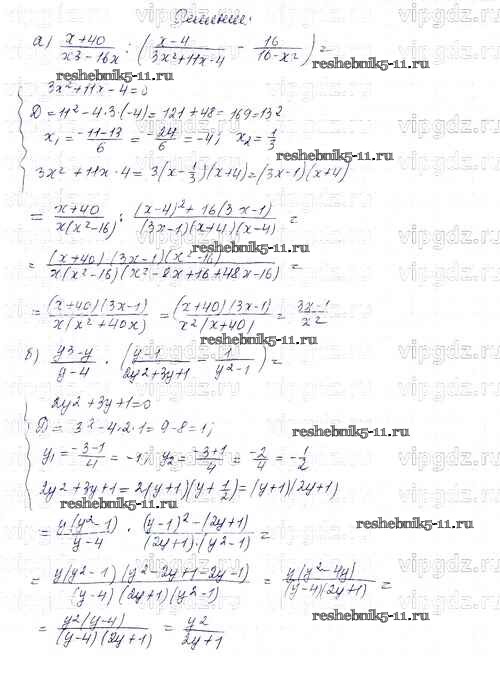 Решение:
а) (x+40)/(x3-16x) : ((x-4)/(3x²+11x-4) - 16/(16-x²)) =
reshebnik5-11.ru
3x²+11x-4=0
D=11²-4·3·(-4)=121+48=169=13²
x₁=(-11-13)/6=-24/6=-4; x₂=1/3
reshebnik5-11.ru
3x²+11x-4=3(x-1/3)(x+4)=(3x-1)(x+4)
= (x+40)/(x(x²-16)) : ((x-4)²+16(3x-1))/((3x-1)(x+4)(x-4)) =
reshebnik5-11.ru
= ((x+40)(3x-1)(x²-16))/(x(x²-16)(x²-8x+16+48x-16)) =
= ((x+40)(3x-1))/(x(x²+40x)) = ((x+40)(3x-1))/(x²(x+40)) = (3x-1)/x²
reshebnik5-11.ru
б) (y³-y)/(y-4) · ((y-1)/(2y²+3y+1) - 1/(y²-1)) =
2y²+3y+1=0
D=3²-4·2·1=9-8=1;
reshebnik5-11.ru
y₁=(-3-1)/4=-1; y₂=(-3+1)/4=-2/4=-1/2
2y²+3y+1=2(y+1)(y+1/2)=(y+1)(2y+1)
reshebnik5-11.ru
= y(y²-1)/(y-4) · ((y-1)²-(2y+1))/((2y+1)(y²-1)) =
reshebnik5-11.ru
= (y(y²-1)(y²-2y+1-2y-1))/((y-4)(2y+1)(y²-1)) = y(y²-4y)/((y-4)(2y+1)) =
= y²(y-4)/((y-4)(2y+1)) = y²/(2y+1)
reshebnik5-11.ru
vipgdz.ru